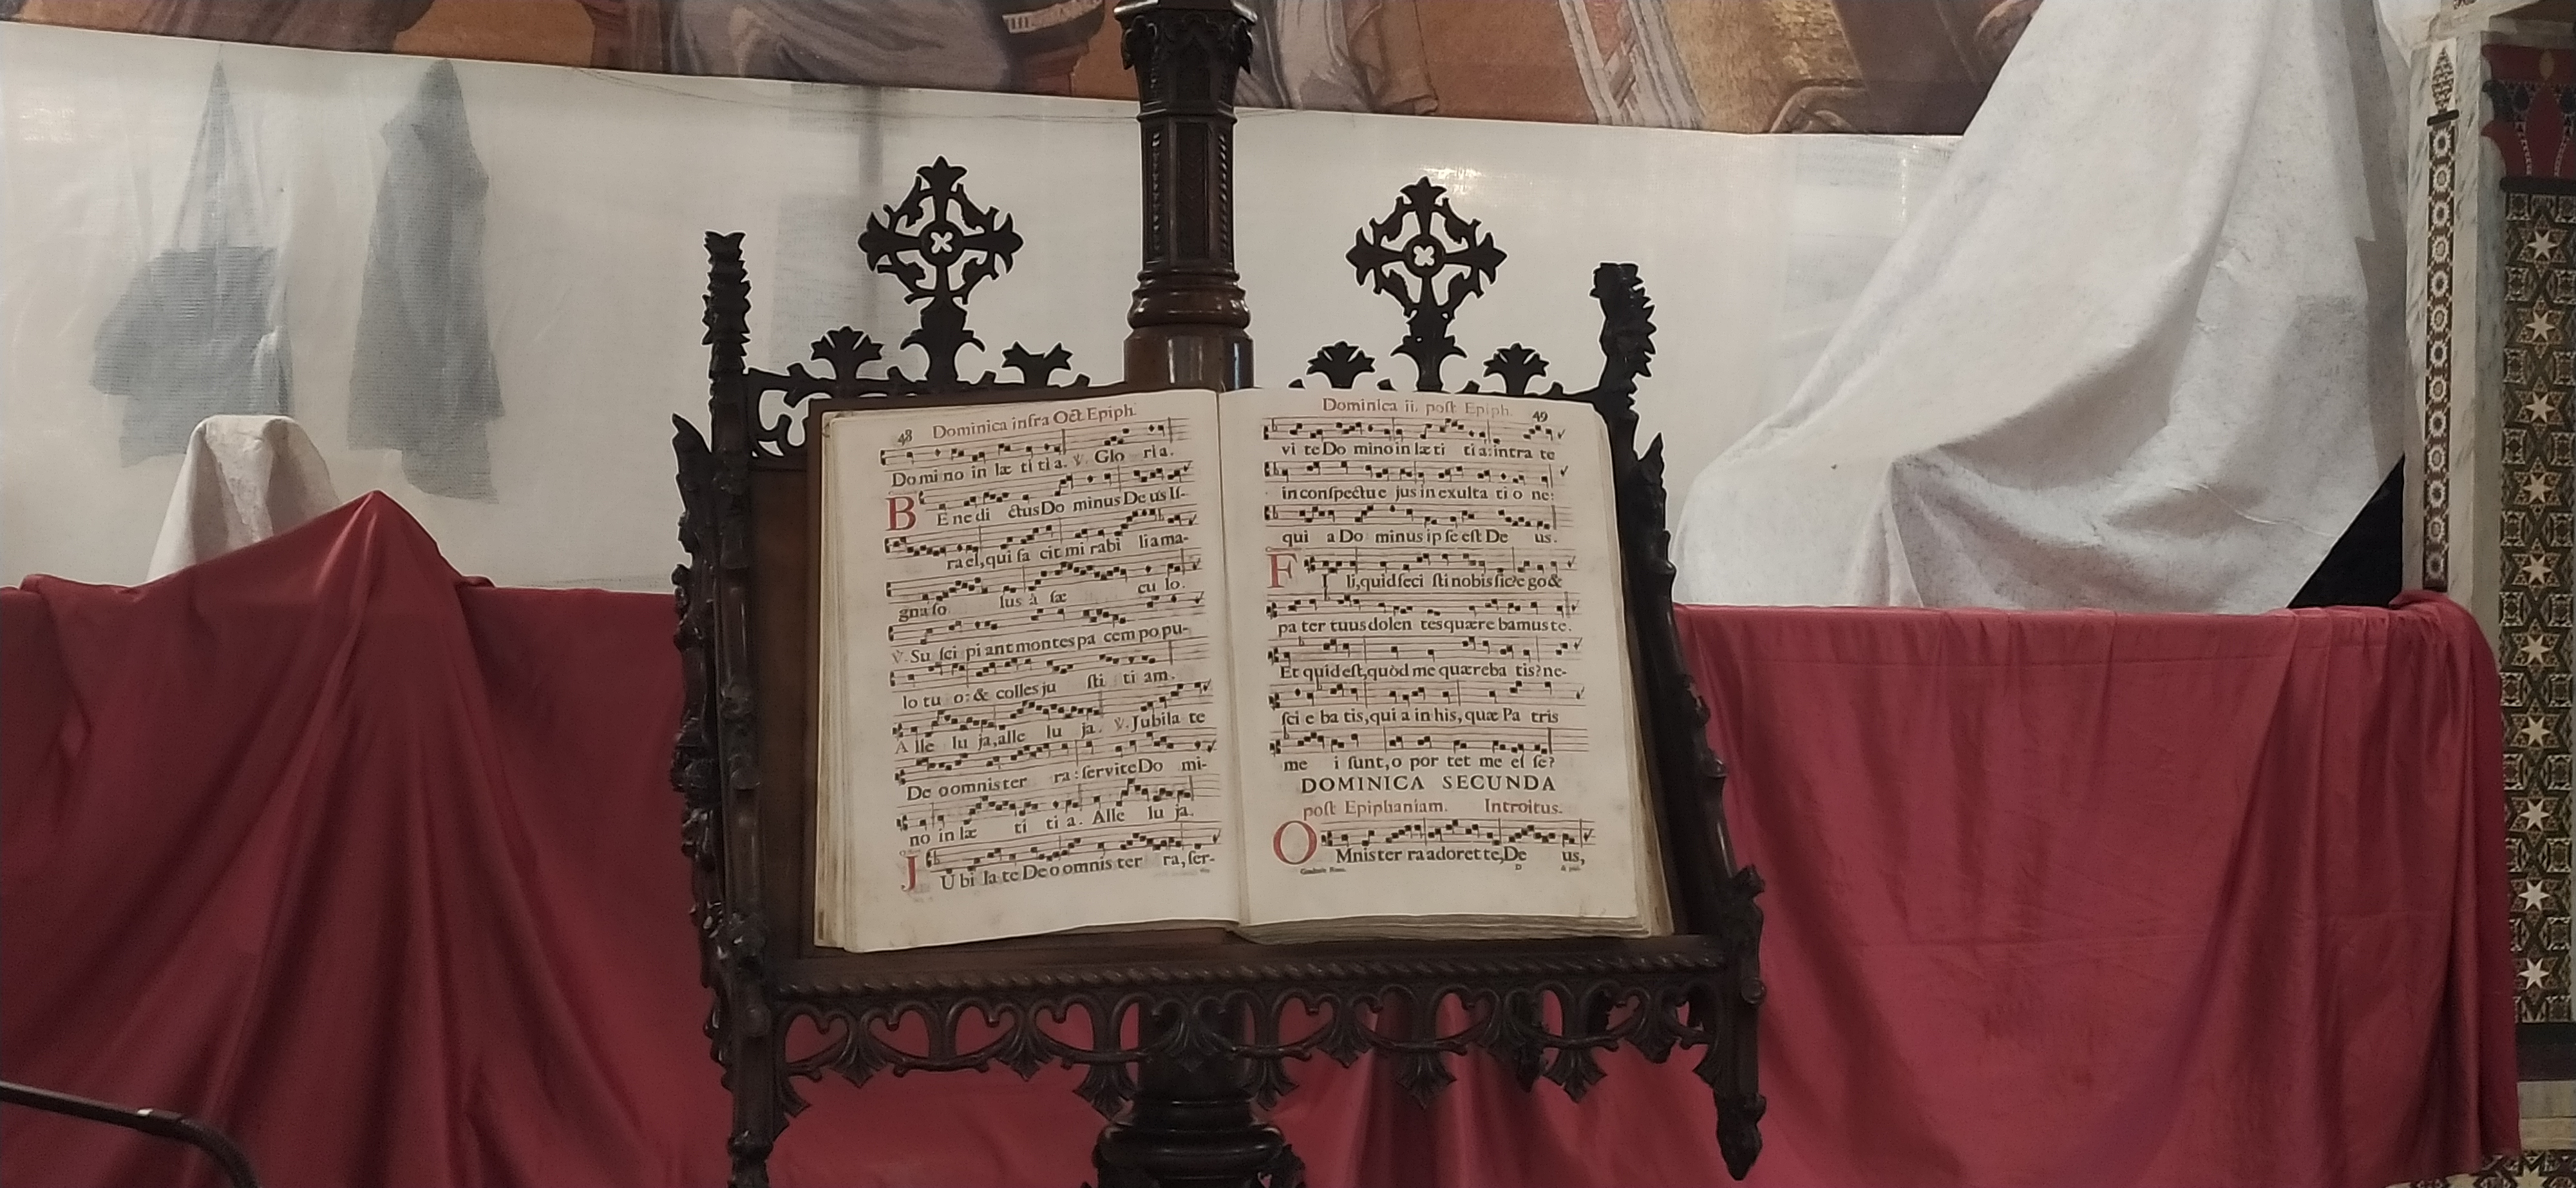 48 Dominica infra Oct. Epiph.
Do mi no in læ ti ti a. ℣. Glo ri a.
B E ne di ctus Do minus De us Iſ-
ra el, qui fa cit mi rabi lia ma-
gna ſo lus à ſæ cu lo.
℣. Su ſci pi ant montes pa cem po pu-
lo tu o: & colles ju ſti ti am.
A lle lu ja, alle lu ja. ℣. Jubila te
De o omnis ter ra: ſervite Do mi-
no in læ ti ti a. Alle lu ja.
J U bi la te De o omnis ter ra, ſer-
Dominica ii. poſt Epiph. 49
vi te Do mino in læ ti ti a: intra te
in conſpectu e jus in exulta ti o ne:
qui a Do minus ip ſe eſt De us.
F I li, quid feci ſti nobis ſic? e go &
pa ter tuus dolen tes quære bamus te.
Et quid eſt, quòd me quæreba tis? ne-
ſci e ba tis, qui a in his, quæ Pa tris
me i ſunt, o por tet me eſ ſe?
DOMINICA SECUNDA
poſt Epiphaniam. Introitus.
O Mnis ter ra adoret te, De us,
D